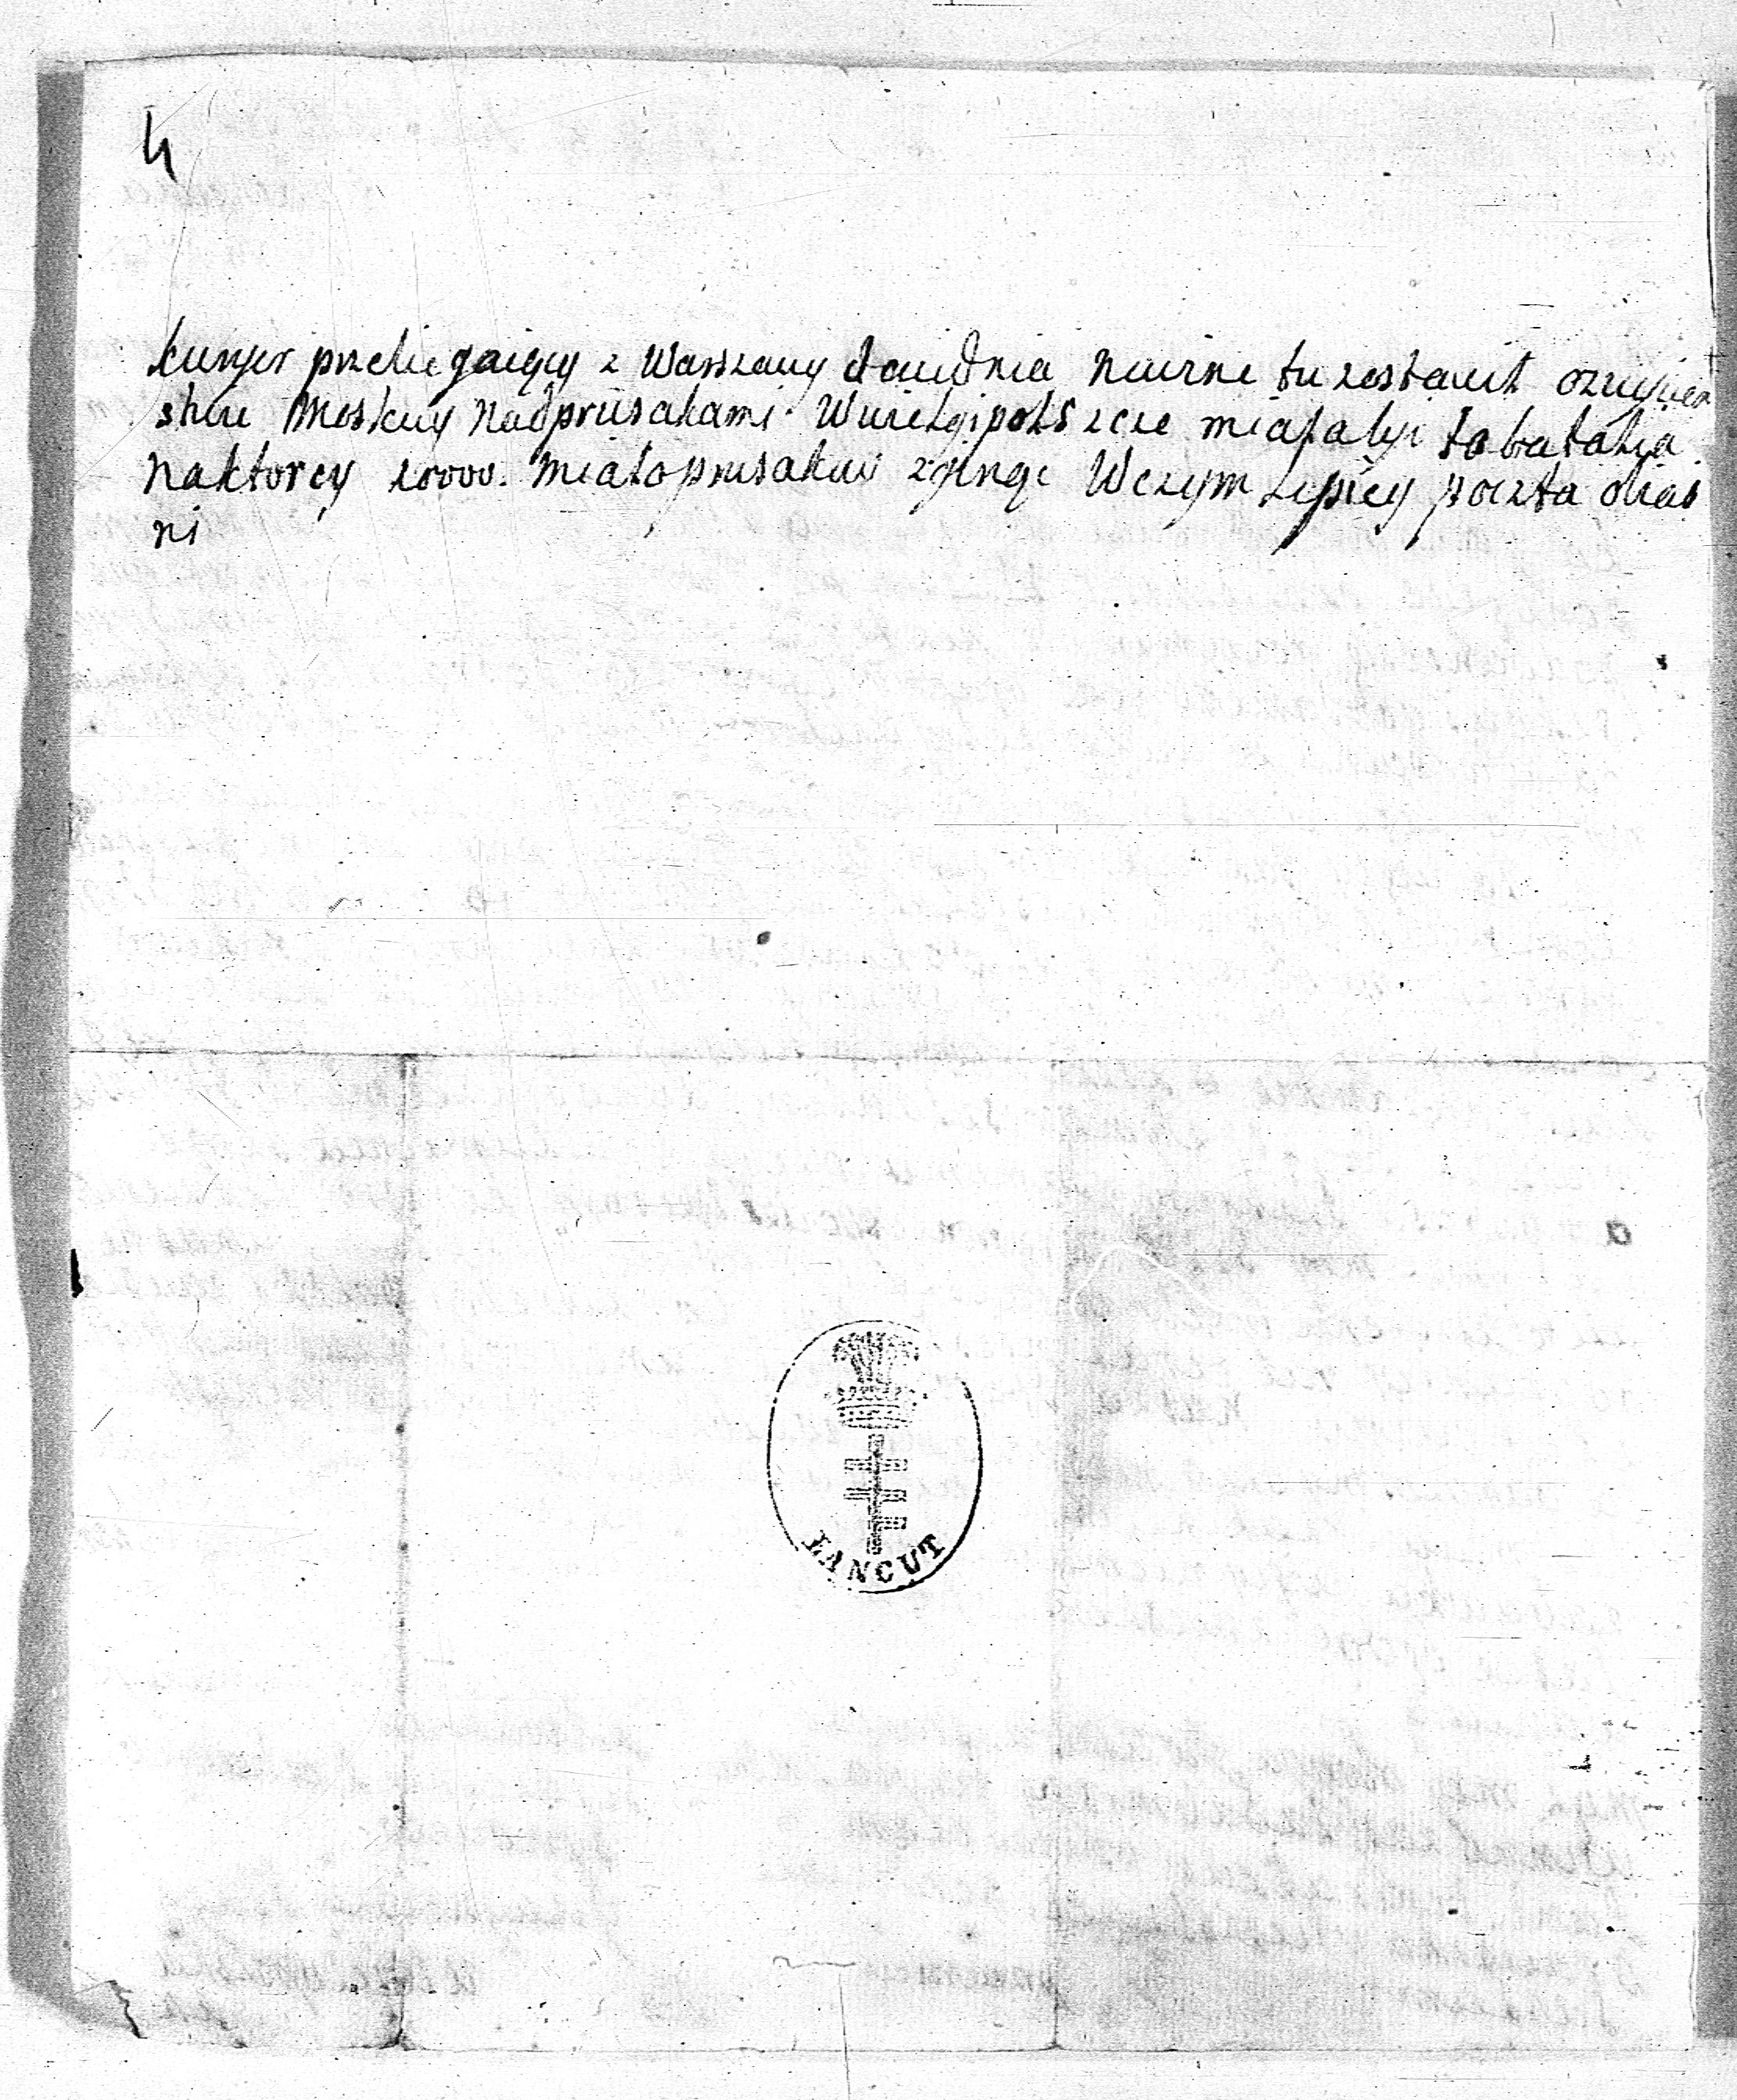 4
kuryer przebiegaiący z Warszawy do wiednia nowine tu zostawił ozwycien
stwie Moskwy Nad prusakami Wwielgi polszcze miałabyi ta batalia
Naktorey 10000. Miało prusakow zginąc Wczym lepiey poczta obias
ni
ŁANCUT